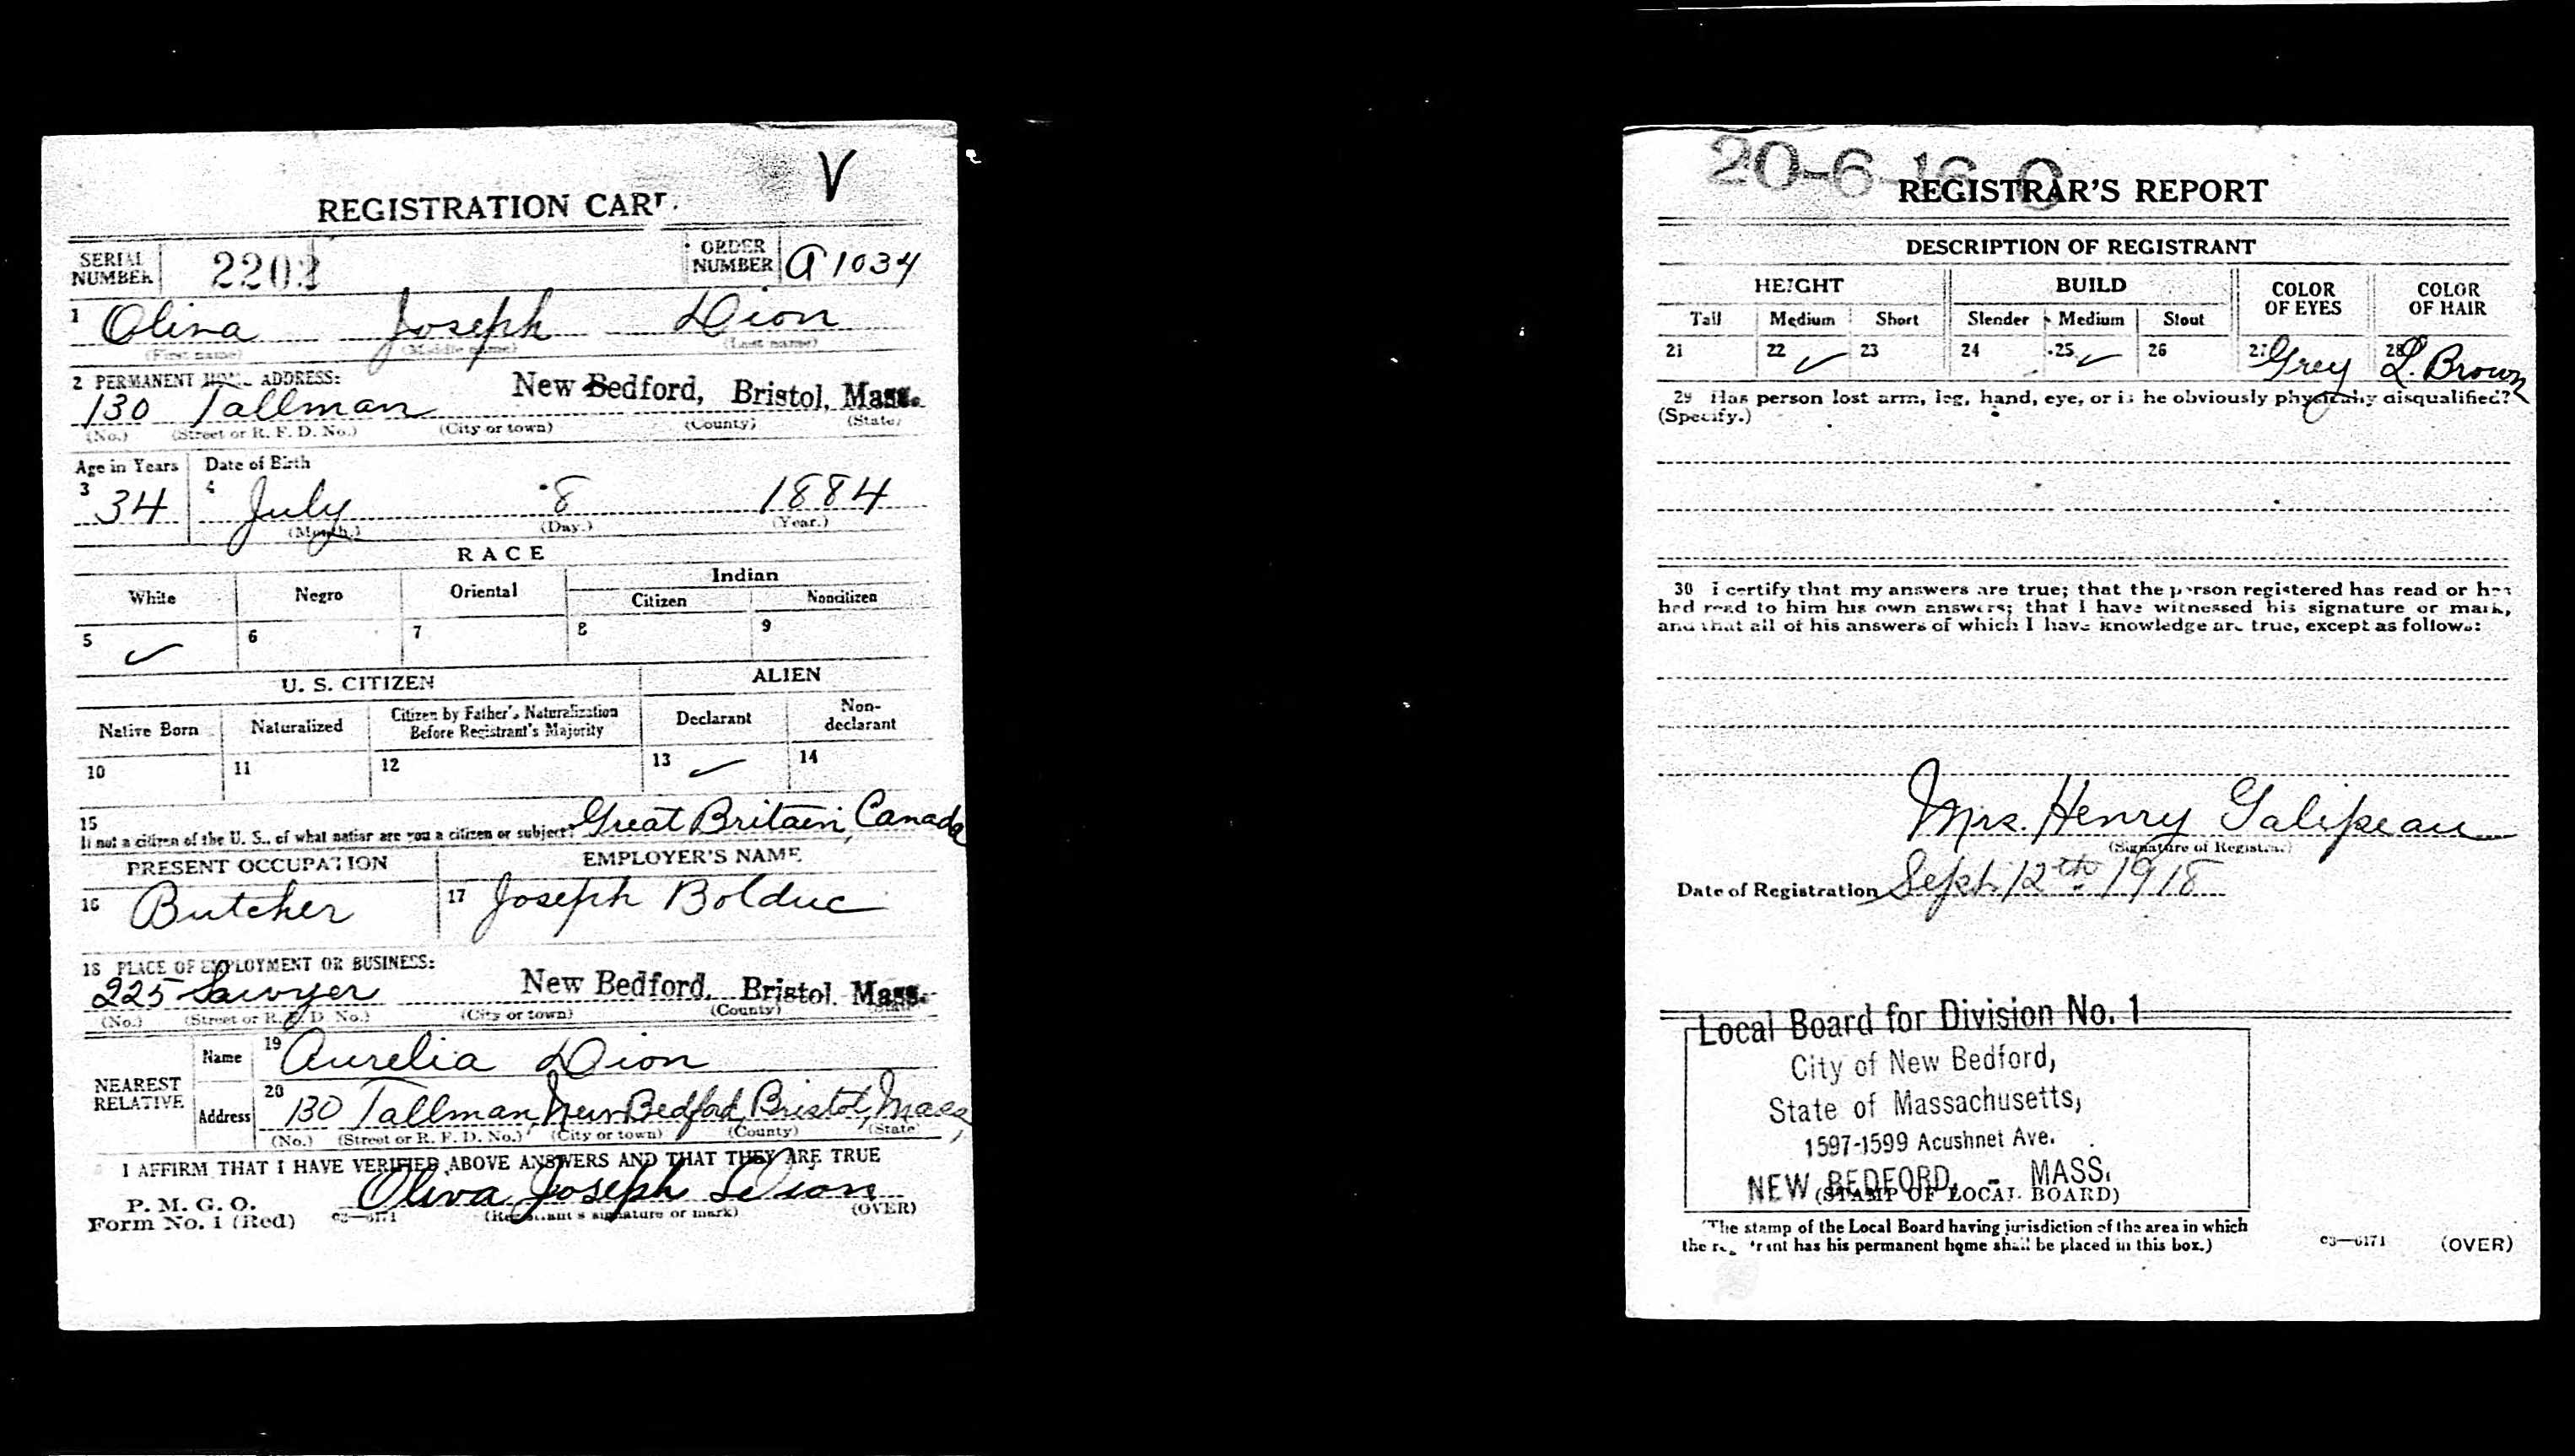 V
REGISTRATION CARD
SERIAL NUMBER ORDER NUMBER A 1034
1 Oliva Joseph Dion
(First name) (Middle name) (Last name)
2 PERMANENT HOME ADDRESS:
130 Tallman New Bedford, Bristol, Mass.
(No.) (Street or R. F. D. No.) (City or town) (County) (State)
Age in Years Date of Birth
3 34 4 July 8 1884
(Month.) (Day.) (Year.)
RACE
White Negro Oriental Indian
Citizen Noncitizen
5 ✓ 6 7 8 9
U. S. CITIZEN ALIEN
Native Born Naturalized Citizen by Father's Naturalization Before Registrant's Majority Declarant Non-declarant
10 11 12 13 ✓ 14
15 If not a citizen of the U. S., of what nation are you a citizen or subject? Great Britain, Canada
PRESENT OCCUPATION EMPLOYER'S NAME
16 Butcher 17 Joseph Bolduc
18 PLACE OF EMPLOYMENT OR BUSINESS:
225 Sawyer New Bedford, Bristol Mass.
(No.) (Street or R. F. D. No.) (City or town) (County) (State)
NEAREST RELATIVE
Name 19 Aurelia Dion
Address 20 130 Tallman, New Bedford, Bristol, Mass,
(No.) (Street or R. F. D. No.) (City or town) (County) (State)
I AFFIRM THAT I HAVE VERIFIED ABOVE ANSWERS AND THAT THEY ARE TRUE
P. M. G. O.
Form No. 1 (Red) c3—6171 Oliva Joseph Dion
(Registrant's signature or mark) (OVER)
REGISTRAR'S REPORT
DESCRIPTION OF REGISTRANT
HEIGHT BUILD COLOR OF EYES COLOR OF HAIR
Tall Medium Short Slender Medium Stout
21 22 ✓ 23 24 25 ✓ 26 27 Grey 28 L. Brown
29 Has person lost arm, leg, hand, eye, or is he obviously physically disqualified?
(Specify.)
30 I certify that my answers are true; that the person registered has read or has
had read to him his own answers; that I have witnessed his signature or mark,
and that all of his answers of which I have knowledge are true, except as follows:
Mrs. Henry Galipeau
(Signature of Registrar)
Date of Registration Sept. 12th 1918
Local Board for Division No. 1
City of New Bedford,
State of Massachusetts,
1597-1599 Acushnet Ave.
NEW BEDFORD, - MASS.
(STAMP OF LOCAL BOARD)
(The stamp of the Local Board having jurisdiction of the area in which
the registrant has his permanent home shall be placed in this box.)
c3—6171 (OVER)